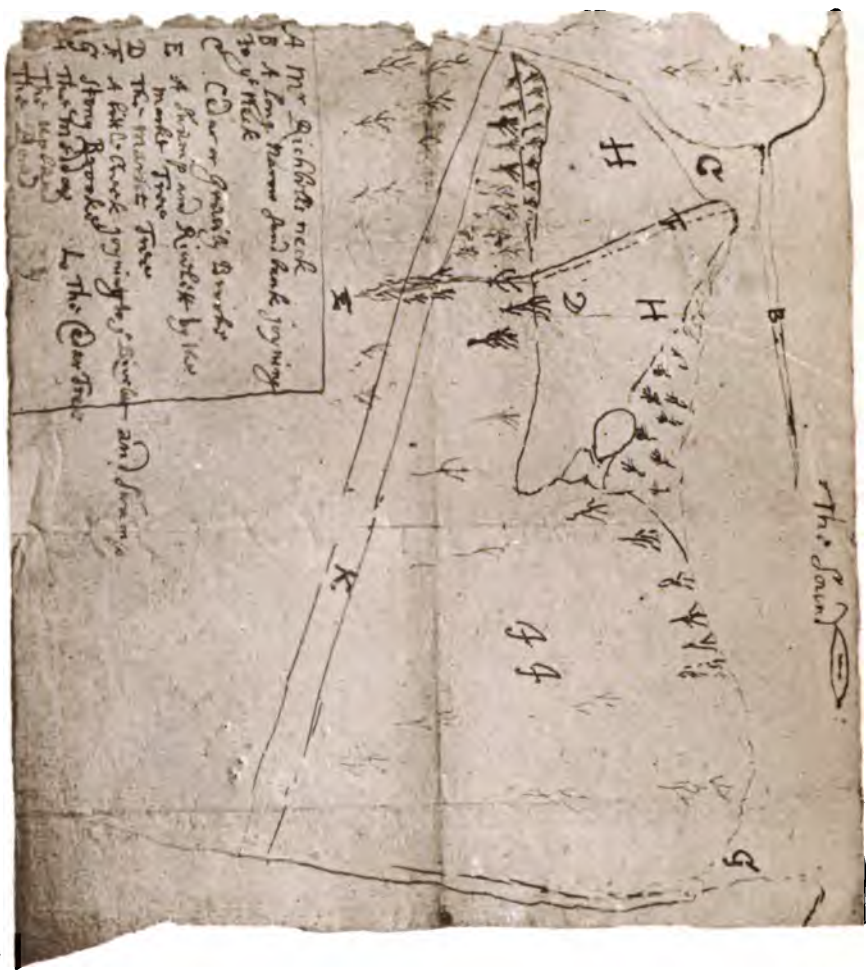 A Mr Richbells neck
B A Long Narrow sand bank joyning
To ye Neck
C. Cedar or Gravily Brooke
E A Swamp and Rivlitt by the
markt Tree
D The markt Tree
F A little Creek joyning to ye Rivelet and Swamp
G Stony Brooke
H The Medow L The Cedar Tree
The upland
The Road
H
C
F
B
D
H
E
The Sound
K
G